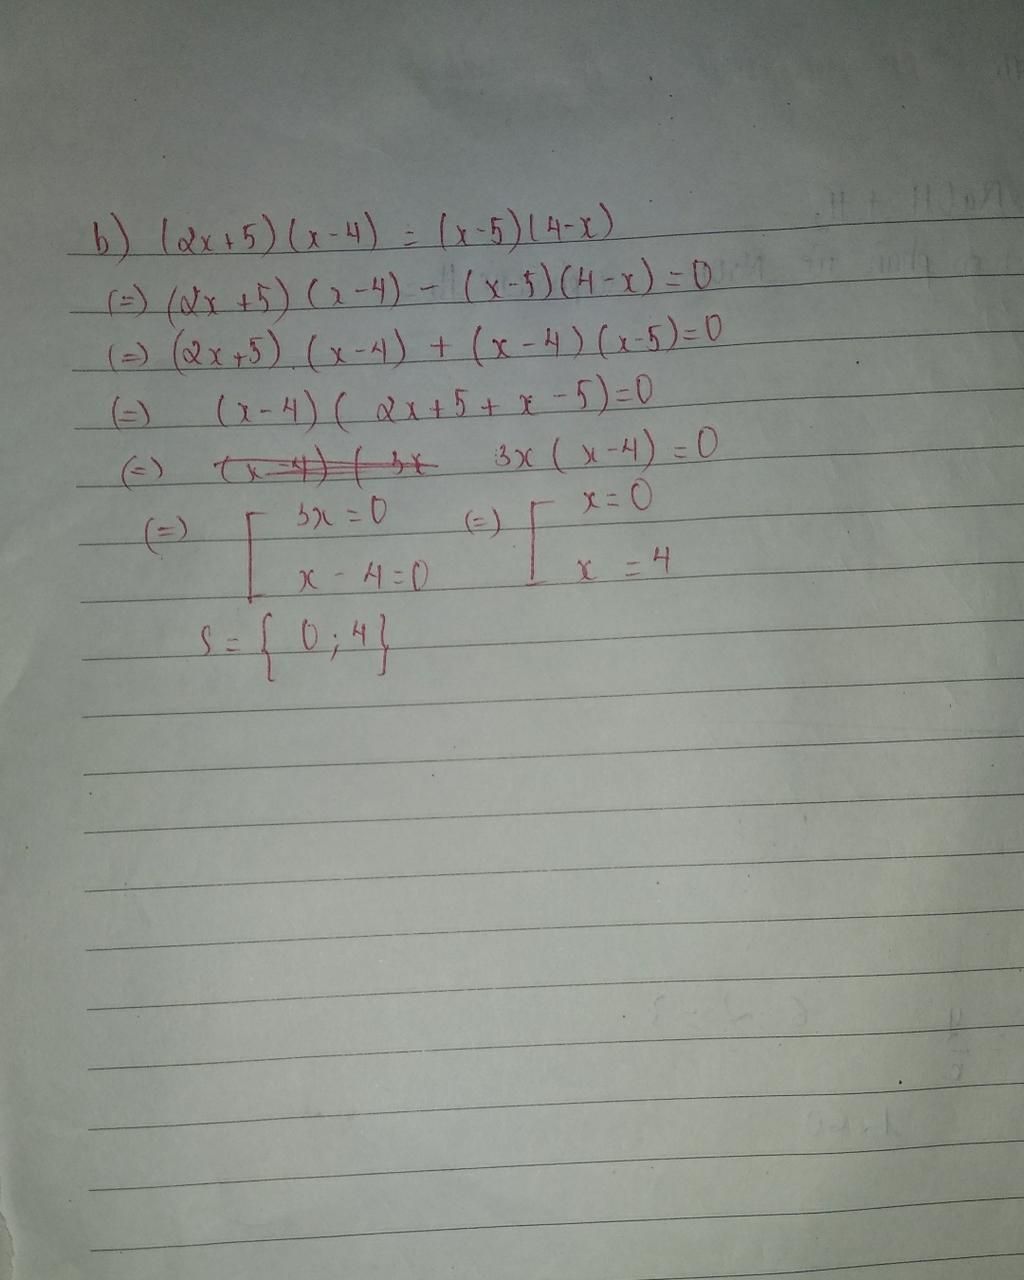 b) (2x+5)(x-4) = (x-5)(4-x)
(=) (2x+5)(x-4) - (x-5)(4-x)=0
(=) (2x+5).(x-4) + (x-4)(x-5)=0
(=) (x-4)(2x+5+x-5)=0
(=) (x-4)(3x 3x(x-4)=0
(=) [ 3x=0 (=) [ x=0
x-4=0 x=4
S={0;4}